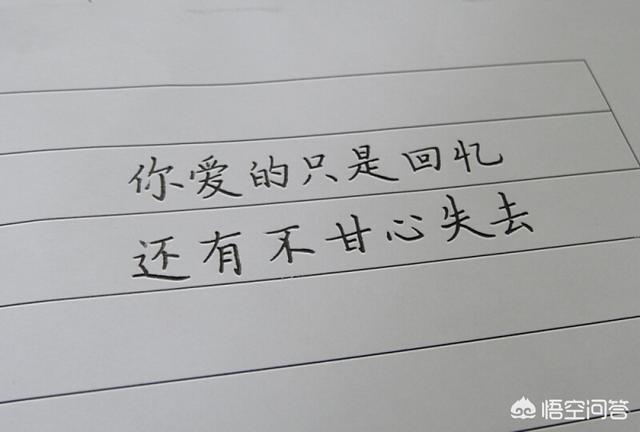 你爱的只是回忆
还有不甘心失去
悟空问答